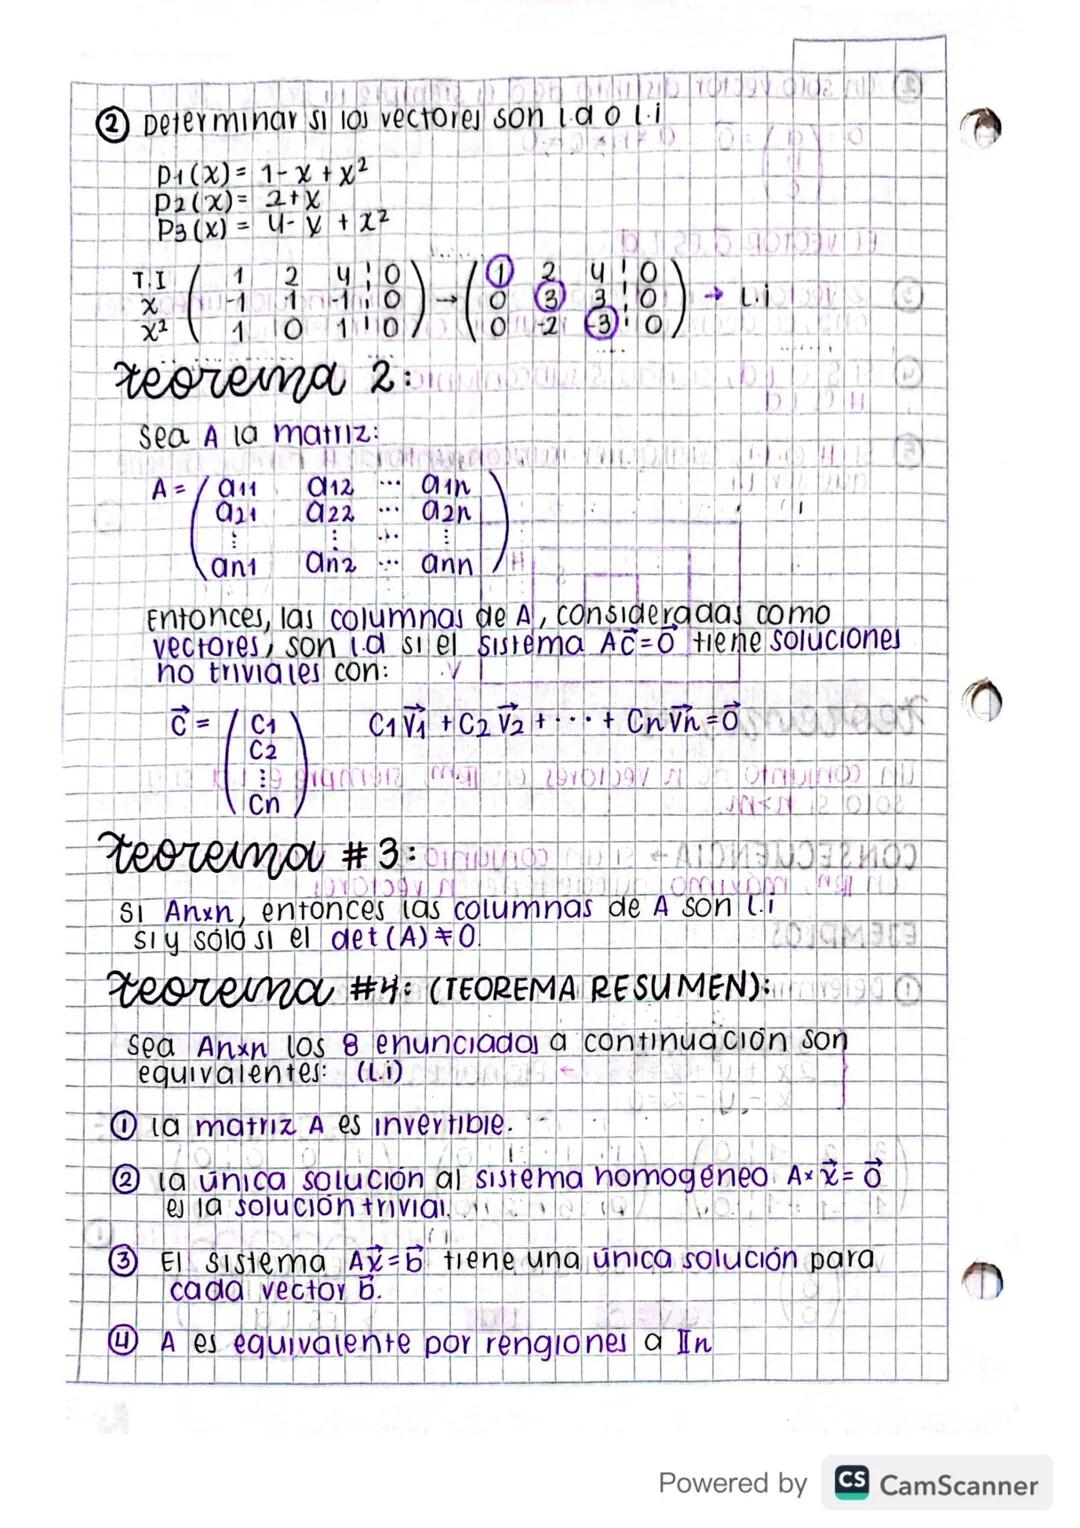 ② Determinar si los vectores son l.d o l.i
P1(x) = 1 - x + x²
P2(x) = 2 + x
P3(x) = 4 - x + x²
T.I ( 1 2 4 ¦ 0 ) → ( 1 2 4 ¦ 0 ) → L.i
x ( -1 1 -1 ¦ 0 ) ( 0 3 3 ¦ 0 )
x² ( 1 0 1 ¦ 0 ) ( 0 -2 -3 ¦ 0 )
teorema 2:
Sea A la matriz:
A = ( a11 a12 ... a1n )
( a21 a22 ... a2n )
( ⋮ ⋮ ⋱ ⋮ )
( an1 an2 ... ann )
Entonces, las columnas de A, consideradas como
vectores, son l.d si el sistema Ac⃗ = 0⃗ tiene soluciones
no triviales con:
c⃗ = ( C1 C1v⃗1 + C2v⃗2 + ··· + Cnv⃗n = 0⃗
C2
⋮
Cn )
teorema #3:
Si Anxn, entonces las columnas de A son l.i
si y sólo si el det(A) ≠ 0.
teorema #4: (TEOREMA RESUMEN):
Sea Anxn los 8 enunciados a continuación son
equivalentes: (L.i)
① la matriz A es invertible.
② la única solución al sistema homogéneo A × x⃗ = 0⃗
es la solución trivial.
③ El sistema Ax⃗ = b⃗ tiene una única solución para
cada vector b⃗.
④ A es equivalente por renglones a In
Powered by CS CamScanner